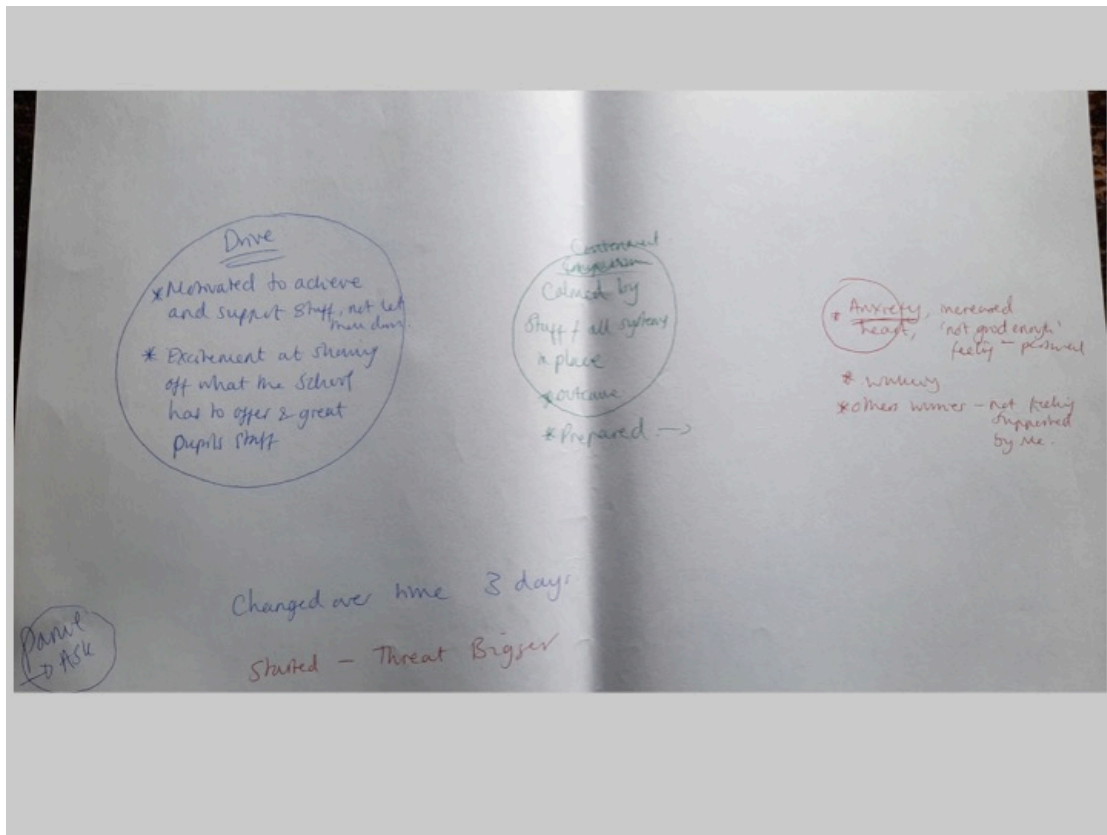 Drive
* Motivated to achieve
and support staff, not let
them down.
* Excitement at showing
off what the school
has to offer & great
pupils staff
Contentment
Calmed by
Staff & all systems
in place
* outcome
* Prepared →
* Anxiety, increased
heart, 'not good enough'
feeling –
*
* others worries – not feeling
supported
by me.
Changed over time 3 days
Started – Threat Bigger
to Ask